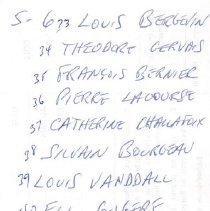 5- 633 LOUIS BERGEVIN
34 THEODORE GERVAIS
35 FRANÇOIS BERNIER
36 PIERRE LACOURSE
37 CATHERINE
38 SILVAIN BOURGEAU
39 LOUIS VANDDALL